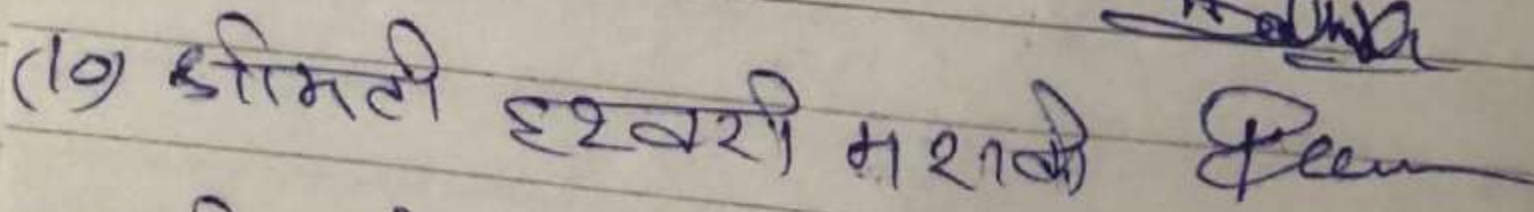 (10) श्रीमती ईश्वरी मरावी